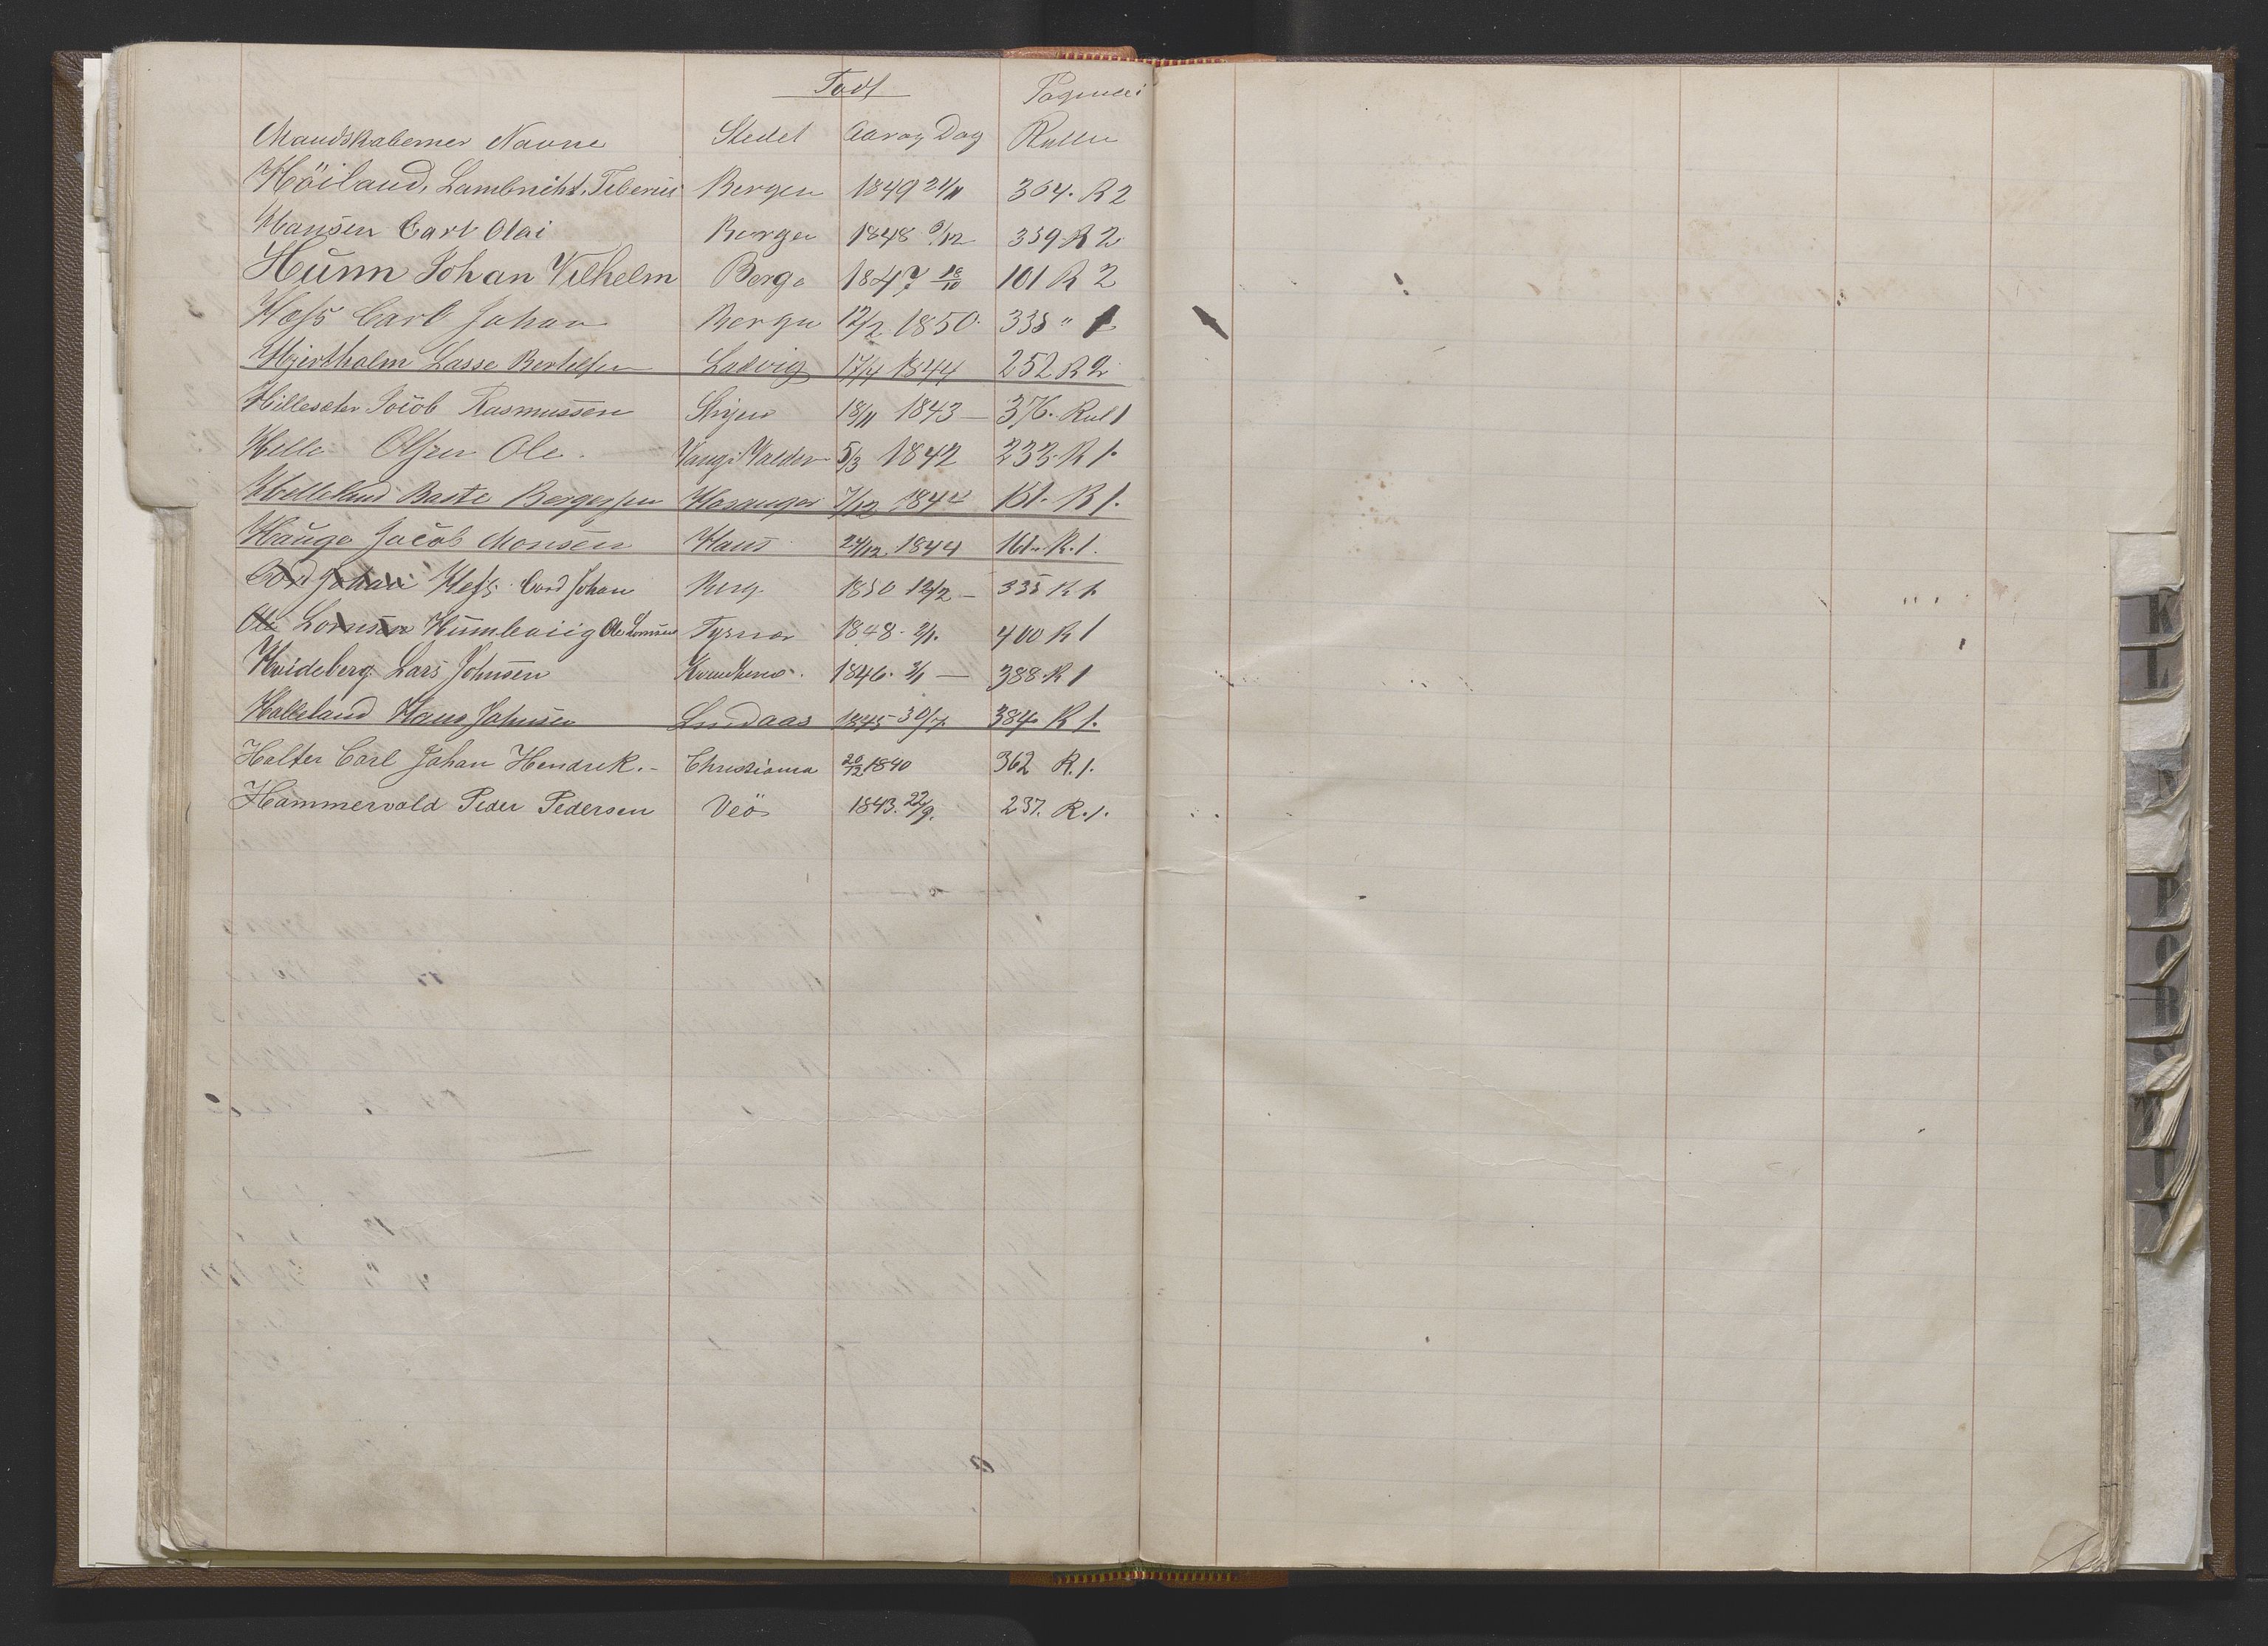 Födt Pagina i
Mandskabernes Navne Stedet Aar og Dag Rullen
Höiland, Lambricht, Teberius Bergen 1849 24/11 364. R 2
Hansen Carl Olai Bergen 1848 6/12 359 R 2
Hunn Johan Vilhelm Berge 1847 18/10 101 R 2
Hess Carl Johan Bergen 12/2 1850. 335 "
Hjertholm Lasse Bertelsen Ladvig 17/4 1844 252 R 2
Jocob Rasmussen Stryen 18/11 1843 — 376. Rul 1
Helle Olsen Ole. Vang i Valders 5/3 1842 233. R 1.
Helleland Baste Bergessen Hosanger 7/12 1842 151. R 1.
Hauge Jacob Monsen Haus 24/12 1844 161. R. 1.
Cord Johan Hess Cord Johan Berg. 1850 12/2 — 335 R 1
Ole Lornsen Ole Lornsen Tysnes 1848. 2/1. 400 R 1
Hvideberg Lars Johnsen 1846. 3/1 — 388. R 1
Halleland Hans Johnsen Lindaas 1845 30/7 384 R 1.
Holter Carl Johan Hendrek. — Christiania 20/12 1840 362 R. 1.
Hammervold Peder Pedersen Veö 1843. 22/9. 237. R. 1.
K
L
N
P
O
R
S
T
U